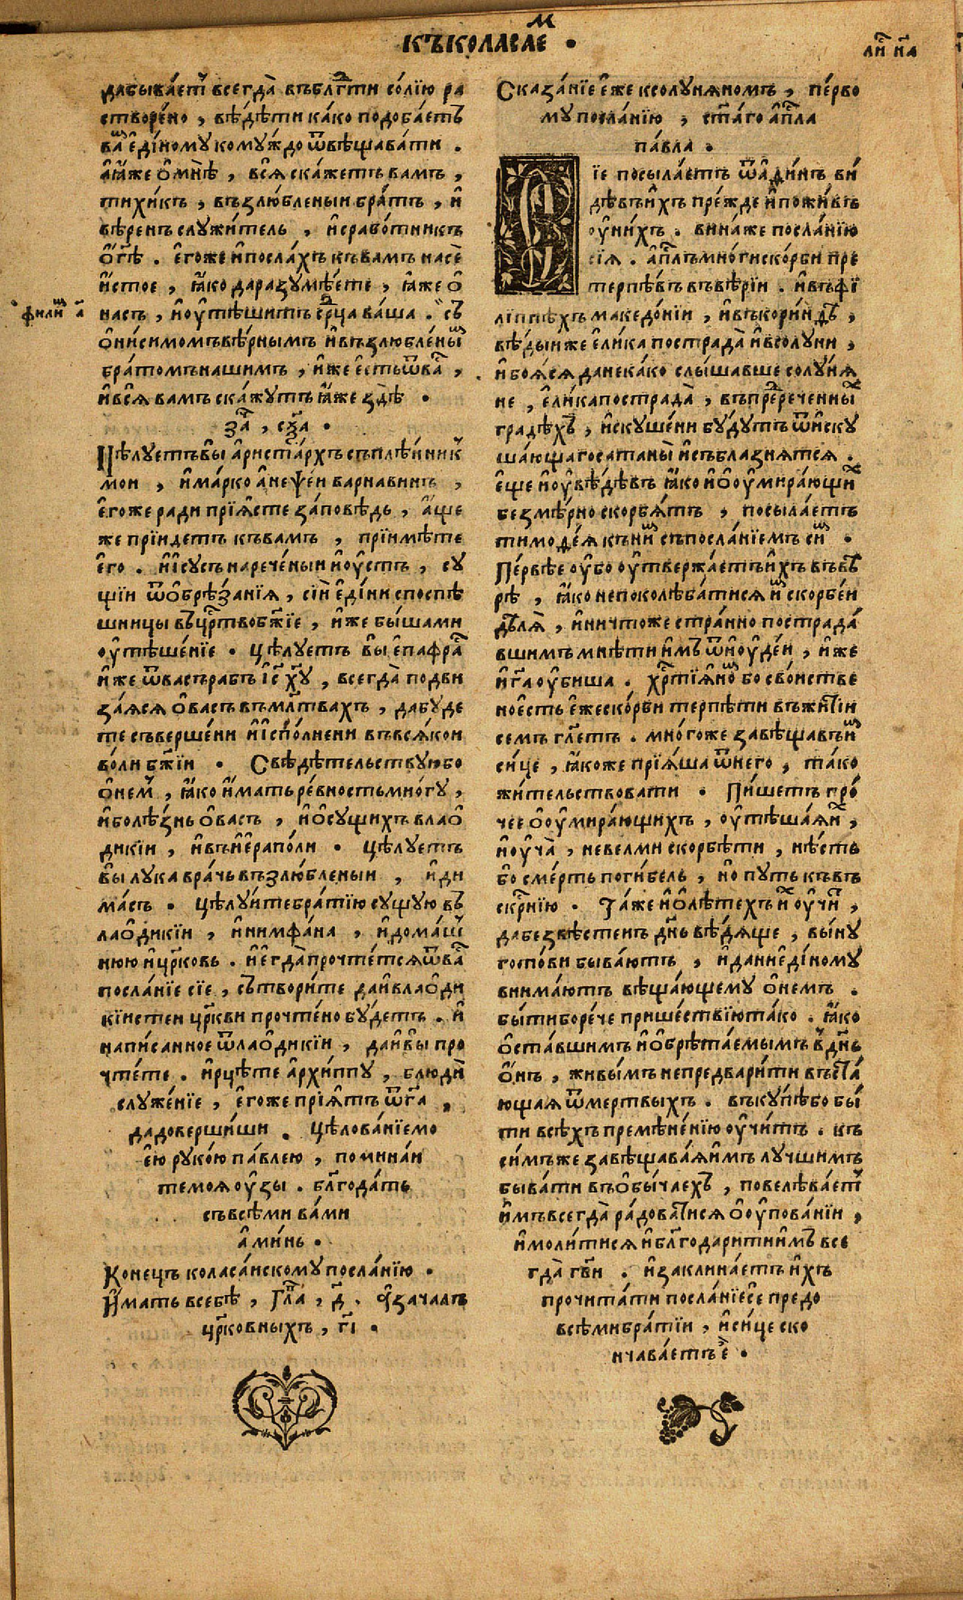 къколасаем •
да бываетъ всегда̀ въблг҃ти со́лїю ра
створе́но , вѣ́дѣти ка́ко подоба́етъ
ва́ є҆ди́ному кому́ждо ѿвѣщава́ти .
а҆ ꙗ҆́же ѡ҆ мнѣ̀ , всѧ̀ ска́жетъ ва́мъ ,
тихи́къ , възлю́бленыи бра́тъ , и҆
вѣ́ренъ служи́тель , и҆ срабо́тникъ
ѡ҆ гдѣ . є҆го́же и҆ посла́хъ къ ва́мъ насѐ
и҆́стое , ꙗ҆́ко да разумѣ́ете , ꙗ҆́же ѡ҆
на́съ , и҆ ᲂу҆тѣ́шитъ срца ва́ша . съ
ѻ҆ни́симомъ вѣ́рнымъ и҆ възлю́бленым
бра́томъ на́шимъ , и҆́же є҆́сть ѿ ва́ ,
и҆ всѧ̀ ва́мъ ска́жутъ ꙗ҆́же здѣ̀ •
за , сха •
Цѣлу́етъ вы а҆риста́рхъ съплѣ́нник
мои , и҆ ма́рко а҆неѱе́и варна́винъ ,
є҆го́же ра́ди прїѧ́сте за́повѣдь , а҆́ще
же прїи́детъ къ ва́мъ , прїимѣ́те
є҆го . и҆ і҆су́съ нарече́ныи и҆ᲂу́стъ , су
щїи ѿ ѡ҆брѣ́занїѧ , сїи є҆ди́ни споспѣ
шницы въ црство бжїе , и҆́же бы́ша ми
ᲂу҆тѣше́нїе • Цѣлу́етъ вы є҆пафра
и҆́же ѿ ва́съ ра́бъ і҆с хⷭ҇у , всегда̀ подви
за́ѧсѧ ѡ҆ ва́съ въ млтвахъ , да бу́де
те съверше́ни и҆ и҆спо́лнени въ всѧ́кои
во́ли бжїи • Свѣдѣ́тельствую бо
ѡ҆ не́м , ꙗ҆́ко и҆́мать ре́вность мно́гу ,
и҆ болѣ́знь ѡ҆ ва́съ , и҆ ѡ҆ су́щихъ в лаѻ
дикі́и , и҆ въ и҆ерапо́ли • Цѣлу́етъ
вы лука́ вра́чь възлю́бленыи , и҆ ди
ма́съ • Цѣлу́ите бра́тїю су́щую въ
лаѻдикі́и , и҆ нимфа́на , и҆ дома́ш
нюю и҆ црковь . и҆ є҆гда̀ прочте́тсѧ ѿ ва
посла́нїе сїе , сътвори́те да и҆ в лаѻди
кі́истеи цркви прочте́но бу́детъ . и҆
напи́санное ѿ лаѻдикі́и , да и҆ вы про
чте́те . и҆ рцѣ́те а҆рхи́ппу , блюдѝ
служе́нїе , є҆го́же прїѧ́тъ ѿ гⷭ҇а ,
да доверши́ши . Цѣлова́нїе мо
є́ю руко́ю па́влею , помина́и
те моѧ̀ ᲂу҆́зы . блгода́ть
съ всѣ́ми ва́ми
а҆ми́нь •
Коне́цъ коласа́искому посла́нїю •
И҆́мать в себѣ̀ , глⷡ҇а , д҃ . а҆ зача́лъ
црко́вныхъ , гі •
фили а
Сказа́нїе є҆́же к солу́нѧномъ , пе́рво
му посла́нїю , ста́го а҆пⷭ҇ла
па́вла •
Сїе посыла́етъ ѿ а҆ѳи́нъ ви
дѣ́въ и҆́хъ пре́жде и҆ пожи́въ
ᲂу҆ ни́хъ . вина́ же посла́нїю
сїѧ̀ . а҆пⷭ҇лъ мно́ги ско́рби пре
терпѣ́въ въ вѣ́рїи . и҆ въ фї
лі́ппѣхъ македо́нїи , и҆ въ кори́ндъ ,
вѣ́дыи же є҆ли́ка пострада̀ и҆ в солу́ни ,
и҆ боѧ́сѧ да не ка́ко слы́шавше солу́нѧ
не , є҆ли́ка пострада̀ , въ преⷣрече́нны
градѣ́хъ , и҆скуше́ни бу́дутъ ѿ и҆ску
ша́ющаго сатаны̀ и҆ съблазнѧ́тсѧ .
є҆ще и҆ ᲂу҆вѣ́дѣвъ ꙗ҆́ко и҆ ѡ҆ ᲂу҆мира́ющи
безмѣ́рно скорбѧ́тъ , посыла́етъ
тимоѳе́ѧ къ ни́ съ посла́нїемъ си́ •
Пе́рвѣе ᲂу҆́бо ᲂу҆твержа́етъ и҆́хъ въ вѣ
рѣ , ꙗ҆́ко не поколѣба́тисѧ и҆ скорбе́и
дѣлѧ̀ , и҆ ничто́же стра́нно пострада́
вшимъ мнѣ́ти и҆́мъ ѿ и҆ᲂуде́и , и҆́же
и҆ гⷭ҇а ᲂу҆би́ша . хрⷭ҇тїѧ́но бо сво́иствe
но є҆́сть є҆́же ско́рби терпѣ́ти въ житїи
се́мъ глетъ . мно́го же завѣща́въ и́
си́це , ꙗ҆́ко же прїѧ́ша ѿ него , та́ко
жи́тельствовати • Пи́шетъ про́
чее ѡ҆ ᲂу҆мира́ющихъ , ᲂу҆тѣша́ѧ и́ ,
и҆ ᲂу҆ча̀ , не ве́лми скорбѣ́ти , нѣ́сть
бо сме́рть поги́бель , но пу́ть къ въ
скрⷭ҇нїю . Та́же и҆ ѡ҆ лѣ́техъ и́ ᲂу҆чи́ ,
да безвѣ́стенъ днь вѣ́дѧще , вы́ну
гото́ви быва́ютъ , и҆ да ни є҆ди́ному
внима́ютъ вѣща́ющему ѡ҆ не́мъ .
бы́ти бо ре́че прише́ствїю та́ко . ꙗ҆́ко
ѡ҆ста́вшимъ и҆ ѡ҆брѣта́емымъ в днь
ѻ҆́нъ , живы́мъ не предвари́ти въста́
ющаѧ ѿ ме́ртвыхъ . въ ку́пѣ бо бы́
ти всѣ́хъ премѣне́нїю ᲂу҆́читъ . къ
си́мъ же завѣщава́ѧ и҆́мъ лу́чшимъ
быва́ти въ ѡ҆бы́чаехъ , повелѣва́етъ
и҆́мъ всегда̀ ра́доватисѧ ѡ҆ ᲂу҆пова́нїи ,
и҆ моли́тисѧ и҆ блгодари́ти и҆́мъ все
гда̀ гⷭ҇ви . и҆ заклина́етъ и҆́хъ
прочита́ти посла́нїе се пре́до
всѣ́ми бра́тїи , и҆ си́це ско
нчава́етъ є҆ •